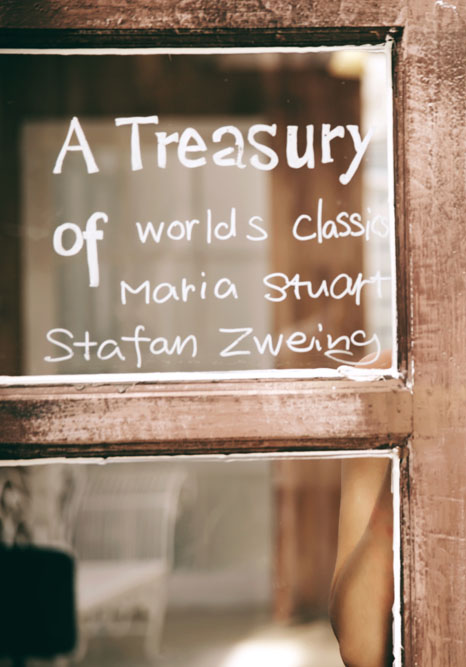 A Treasury
of worlds classics
Maria Stuart
Stafan Zweing